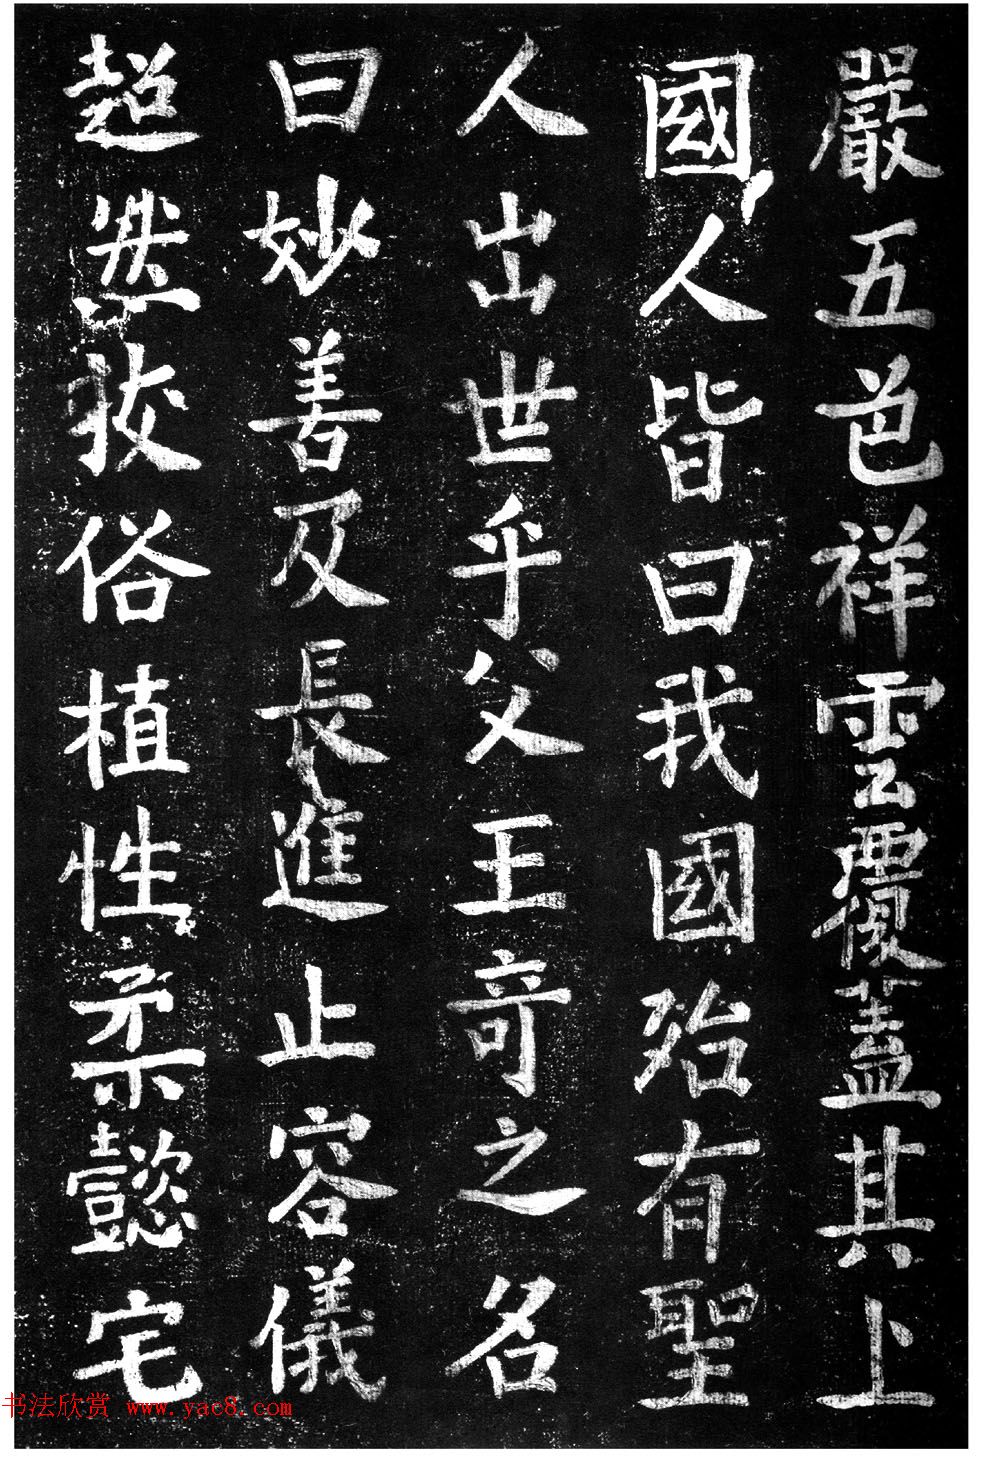 嚴五色祥雲覆蓋其上
國人皆曰我國殆有聖
人出世乎父王奇之名
曰妙善及長進止容儀
超然拔俗植性柔懿宅
书法欣赏 www.yac8.com